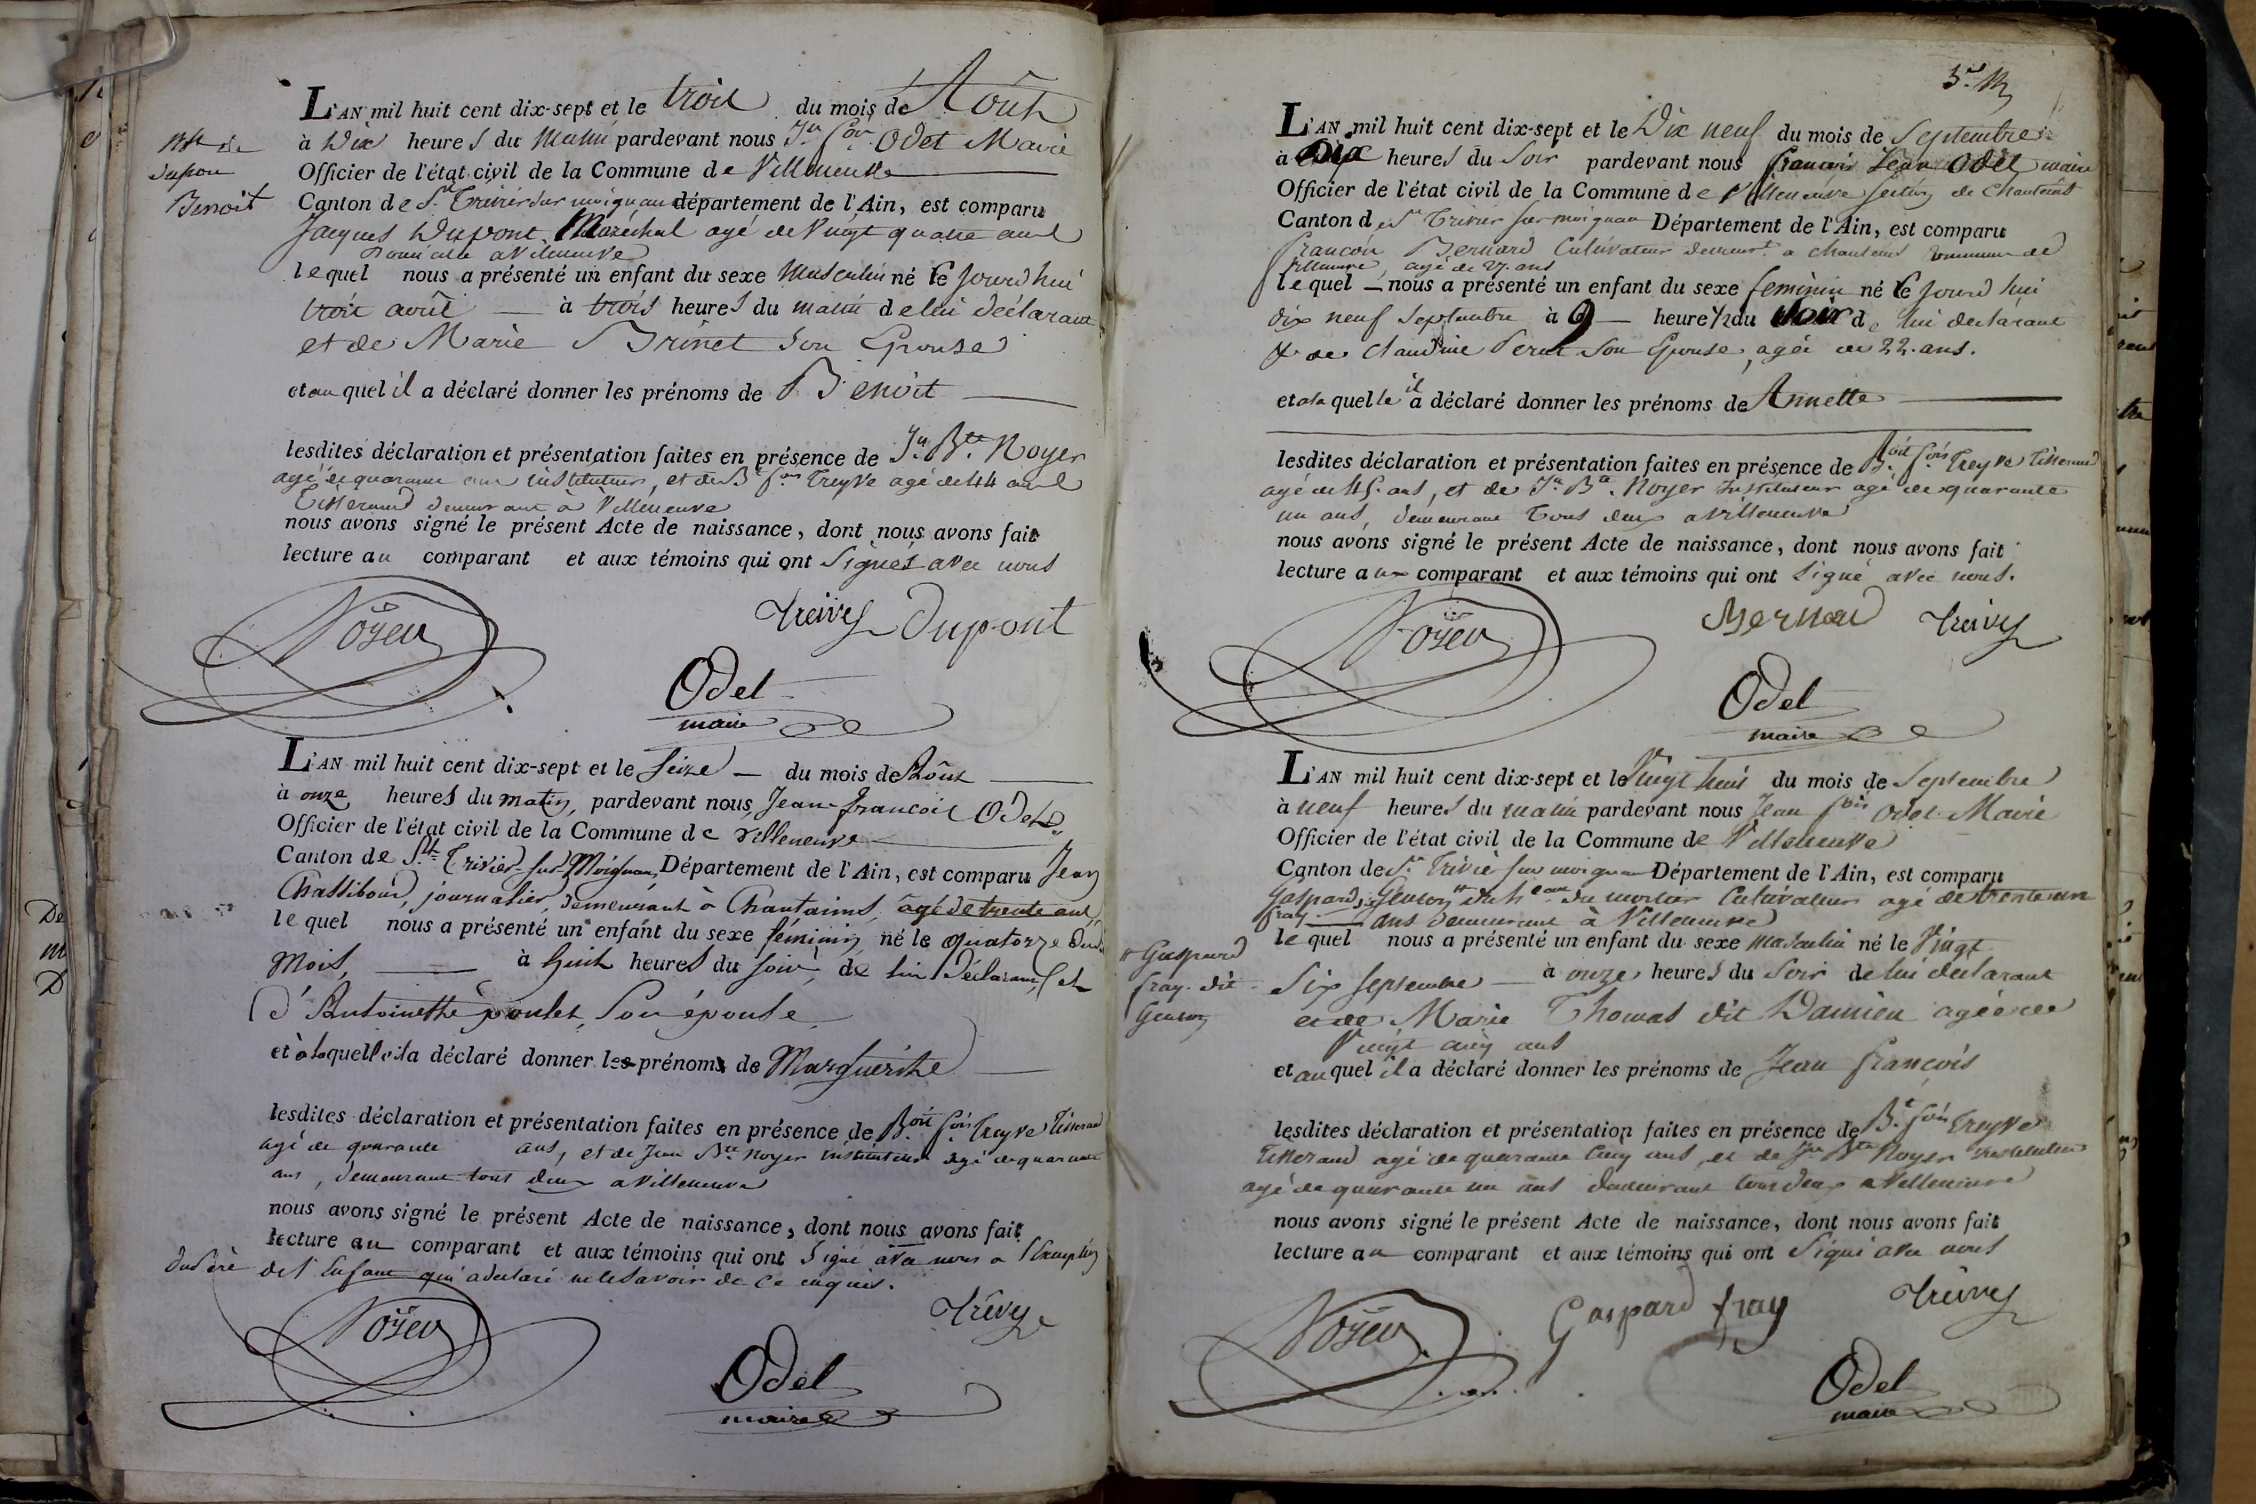 Nce de
Dupon
Benoit
L'AN mil huit cent dix-sept et le trois du mois de Août
à Dix heures du Matin pardevant nous Jn fois Odet Maire
Officier de l'état civil de la Commune de Villeneuve
Canton de St Trivier sur moignan département de l'Ain, est comparu
Jacques Dupont Maréchal agé de vingt quatre ans
Domicilié a Villeneuve
lequel nous a présenté un enfant du sexe Masculin né le jourd'hui
trois août à trois heures du matin de lui déclarant
et de Marie Brinet son Epouse
et au quel il a déclaré donner les prénoms de Benoit
lesdites déclaration et présentation faites en présence de Jn Bte Noyer
agé de quarante ans instituteur, et de Bt fois Treyve agé de 44 ans
Tisserand demeurant à Villeneuve
nous avons signé le présent Acte de naissance, dont nous avons fait
lecture au comparant et aux témoins qui ont Signés avec nous
Noyer
Treive
Dupont
Odet
maire
L'AN mil huit cent dix-sept et le Seize du mois de Août
à onze heures du matin, pardevant nous Jean-francois Odet
Officier de l'état civil de la Commune de Villeneuve
Canton de St Trivier-sur-Moignan, Département de l'Ain, est comparu Jean
Chassibout, journalier, demeurant à Chantains, âgé de trente ans,
lequel nous a présenté un enfant du sexe féminin né le quatorze dudit
Mois, à huit heures du soir, de lui Déclarant, et
d'Antoinette poulet, Son épouse,
et à laquelle il a déclaré donner les prénoms de Marguerite
lesdites déclaration et présentation faites en présence de Boit fois Treyve Tisserand
agé de quarante ans, et de Jean Bte Noyer instituteur agé de quarante
ans, demeurant tous deux a Villeneuve
nous avons signé le présent Acte de naissance, dont nous avons fait
lecture au comparant et aux témoins qui ont Signé avec nous a l'Exception
du Père de l'Enfant qui a declaré ne le savoir de ce enquis.
Noyer
Treive
Odet
maire
L'AN mil huit cent dix-sept et le Dix neuf du mois de Septembre
à Dix heures du Soir pardevant nous francois Jean Odet maire
Officier de l'état civil de la Commune de Villeneuve section de Chanteins
Canton de St Trivier sur moignan Département de l'Ain, est comparu
francois Bernard Cultivateur demeurt a Chanteins Commune de
Villeneuve, agé de 27 ans
lequel nous a présenté un enfant du sexe feminin né le jourd'hui
dix neuf Septembre à 9 heures 1/2 du Soir de lui declarant
& de Claudine Perret Son Epouse, agée de 22 ans.
et a la quelle il a déclaré donner les prénoms de Annette
lesdites déclaration et présentation faites en présence de Boit fois Treyve Tisserand
agé de 45 ans, et de Jn Bte Noyer Instituteur agé de quarante
un ans, demeurant Tous deux a Villeneuve
nous avons signé le présent Acte de naissance, dont nous avons fait
lecture aux comparant et aux témoins qui ont signé avec nous.
Noyer
Bernard
Treive
Odet
maire
L'AN mil huit cent dix-sept et le Vingt Huit du mois de Septembre
à neuf heures du matin pardevant nous Jean fois Odet Maire
Officier de l'état civil de la Commune de Villeneuve
Canton de St Trivié sur moignan Département de l'Ain, est comparu
Gaspard du mortier Cultivateur agé de trente un
fray ans demeurant à Villeneuve
lequel nous a présenté un enfant du sexe masculin né le Vingt
Gaspard
fray dit
Six septembre à onze heures du Soir de lui declarant
et de Marie Thomas dit Damien agée de
Vingt cinq ans
et au quel il a déclaré donner les prénoms de Jean françois
lesdites déclaration et présentation faites en présence de Bt fois Treyve
Tisserand agé de quarante cinq ans, et de Jn Bte Noyer instituteur
agé de quarante un ans demeurant tous deux a Villeneuve
nous avons signé le présent Acte de naissance, dont nous avons fait
lecture au comparant et aux témoins qui ont Signé avec nous
Noyer
Gaspard fray
Treive
Odet
maire